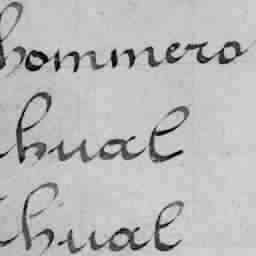 hommero
hual
hual